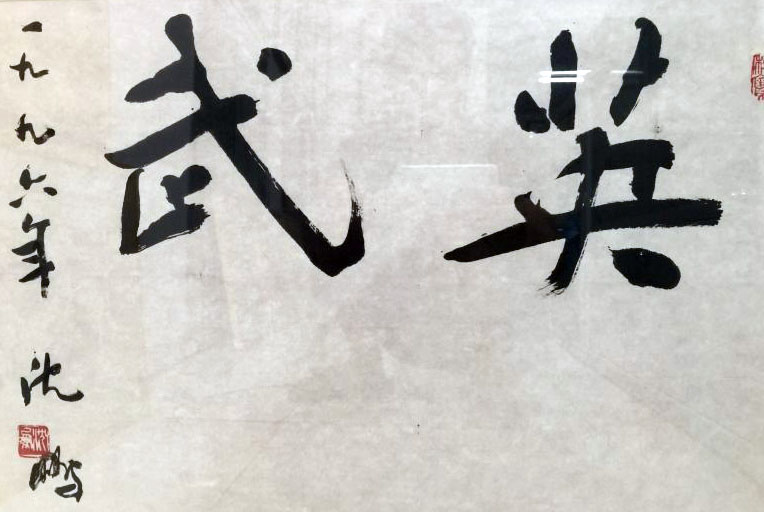 英武
一九九六年 沈鹏